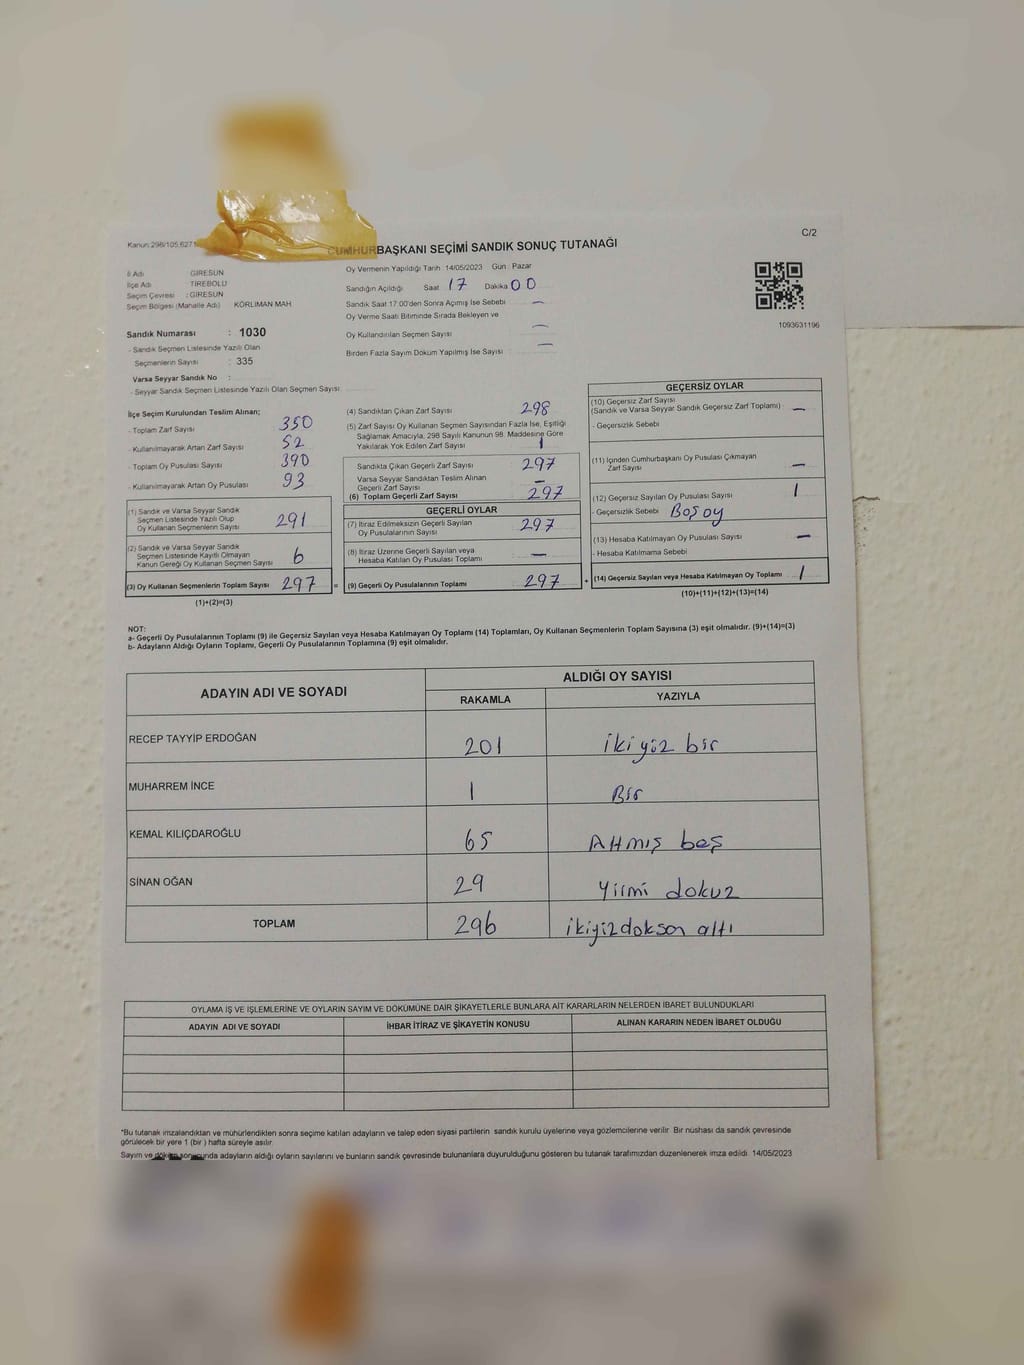 Kanun:298/105,627 CUMHURBAŞKANI SEÇİMİ SANDIK SONUÇ TUTANAĞI C/2
İl Adı : GİRESUN
İlçe Adı : TİREBOLU
Seçim Çevresi : GİRESUN
Seçim Bölgesi (Mahalle Adı) : KÖRLİMAN MAH.
Sandık Numarası : 1030
- Sandık Seçmen Listesinde Yazılı Olan
Seçmenlerin Sayısı : 335
Varsa Seyyar Sandık No :
- Seyyar Sandık Seçmen Listesinde Yazılı Olan Seçmen Sayısı:
Oy Vermenin Yapıldığı Tarih :14/05/2023 Gün : Pazar
Sandığın Açıldığı Saat 17 Dakika 00
Sandık Saat 17:00'den Sonra Açılmış İse Sebebi : —
Oy Verme Saati Bitiminde Sırada Bekleyen ve
Oy Kullandırılan Seçmen Sayısı : —
Birden Fazla Sayım Döküm Yapılmış İse Sayısı : —
1093631196
İlçe Seçim Kurulundan Teslim Alınan;
- Toplam Zarf Sayısı : 350
- Kullanılmayarak Artan Zarf Sayısı : 52
- Toplam Oy Pusulası Sayısı : 390
- Kullanılmayarak Artan Oy Pusulası : 93
(1) Sandık ve Varsa Seyyar Sandık
Seçmen Listesinde Yazılı Olup
Oy Kullanan Seçmenlerin Sayısı 291
(2) Sandık ve Varsa Seyyar Sandık
Seçmen Listesinde Kayıtlı Olmayan
Kanun Gereği Oy Kullanan Seçmen Sayısı 6
(3) Oy Kullanan Seçmenlerin Toplam Sayısı 297 =
(1)+(2)=(3)
(4) Sandıktan Çıkan Zarf Sayısı : 298
(5) Zarf Sayısı Oy Kullanan Seçmen Sayısından Fazla İse, Eşitliği
Sağlamak Amacıyla, 298 Sayılı Kanunun 98. Maddesine Göre
Yakılarak Yok Edilen Zarf Sayısı : 1
Sandıkta Çıkan Geçerli Zarf Sayısı : 297
Varsa Seyyar Sandıktan Teslim Alınan
Geçerli Zarf Sayısı : —
(6) Toplam Geçerli Zarf Sayısı : 297
GEÇERLİ OYLAR
(7) İtiraz Edilmeksizin Geçerli Sayılan
Oy Pusulalarının Sayısı : 297
(8) İtiraz Üzerine Geçerli Sayılan veya
Hesaba Katılan Oy Pusulası Toplamı : —
(9) Geçerli Oy Pusulalarının Toplamı : 297 +
GEÇERSİZ OYLAR
(10) Geçersiz Zarf Sayısı
(Sandık ve Varsa Seyyar Sandık Geçersiz Zarf Toplamı) : —
- Geçersizlik Sebebi :
(11) İçinden Cumhurbaşkanı Oy Pusulası Çıkmayan
Zarf Sayısı : —
(12) Geçersiz Sayılan Oy Pusulası Sayısı : 1
- Geçersizlik Sebebi : Boş oy
(13) Hesaba Katılmayan Oy Pusulası Sayısı : —
- Hesaba Katılmama Sebebi :
(14) Geçersiz Sayılan veya Hesaba Katılmayan Oy Toplamı : 1
(10)+(11)+(12)+(13)=(14)
NOT:
a- Geçerli Oy Pusulalarının Toplamı (9) ile Geçersiz Sayılan veya Hesaba Katılmayan Oy Toplamı (14) Toplamları, Oy Kullanan Seçmenlerin Toplam Sayısına (3) eşit olmalıdır. (9)+(14)=(3)
b- Adayların Aldığı Oyların Toplamı, Geçerli Oy Pusulalarının Toplamına (9) eşit olmalıdır.
ADAYIN ADI VE SOYADI ALDIĞI OY SAYISI
RAKAMLA YAZIYLA
RECEP TAYYİP ERDOĞAN 201 ikiyüz bir
MUHARREM İNCE 1 Bir
KEMAL KILIÇDAROĞLU 65 Altmış beş
SİNAN OĞAN 29 Yirmi dokuz
TOPLAM 296 ikiyüzdoksan altı
OYLAMA İŞ VE İŞLEMLERİNE VE OYLARIN SAYIM VE DÖKÜMÜNE DAİR ŞİKAYETLERLE BUNLARA AİT KARARLARIN NELERDEN İBARET BULUNDUKLARI
ADAYIN ADI VE SOYADI İHBAR İTİRAZ VE ŞİKAYETİN KONUSU ALINAN KARARIN NEDEN İBARET OLDUĞU
*Bu tutanak imzalandıktan ve mühürlendikten sonra seçime katılan adayların ve talep eden siyasi partilerin sandık kurulu üyelerine veya gözlemcilerine verilir. Bir nüshası da sandık çevresinde
görülecek bir yere 1 (bir ) hafta süreyle asılır.
Sayım ve döküm sonucunda adayların aldığı oyların sayılarını ve bunların sandık çevresinde bulunanlara duyurulduğunu gösteren bu tutanak tarafımızdan düzenlenerek imza edildi. 14/05/2023